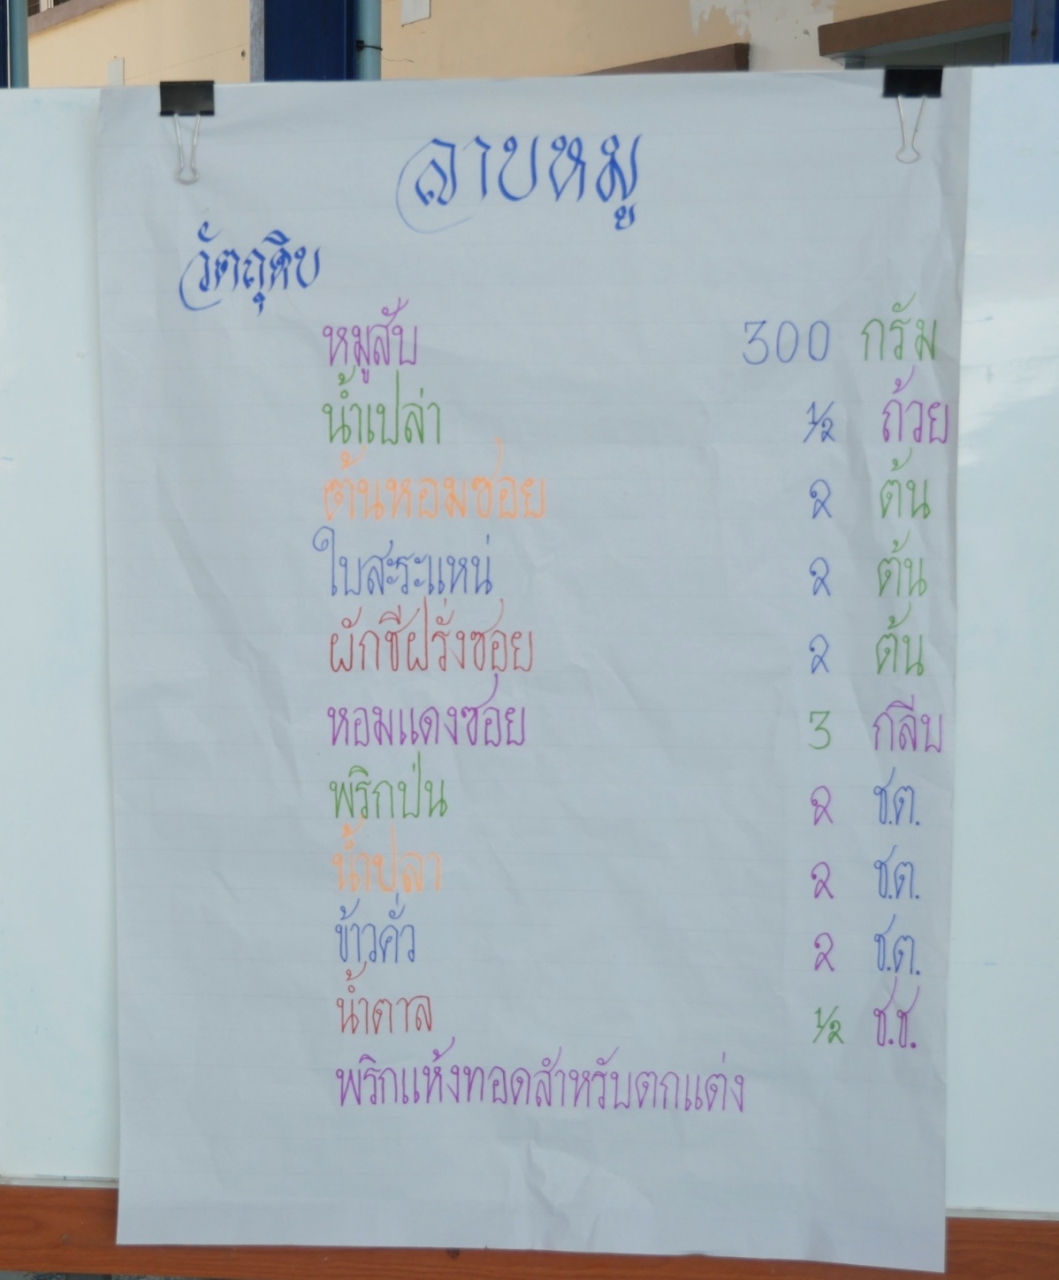 ลาบหมู
วัตถุดิบ
หมูสับ 300 กรัม
น้ำเปล่า 1/2 ถ้วย
ต้นหอมซ่อย 2 ต้น
ใบสะระแหน่ 2 ต้น
ผักชีฝรั่งซอย 2 ต้น
หอมแดงซอย 3 กลีบ
พริกป่น 2 ช.ต.
น้ำปลา 2 ช.ต.
ข้าวคั่ว 2 ช.ต.
น้ำตาล 1/2 ช.ช.
พริกแห้งทอดสำหรับตกแต่ง